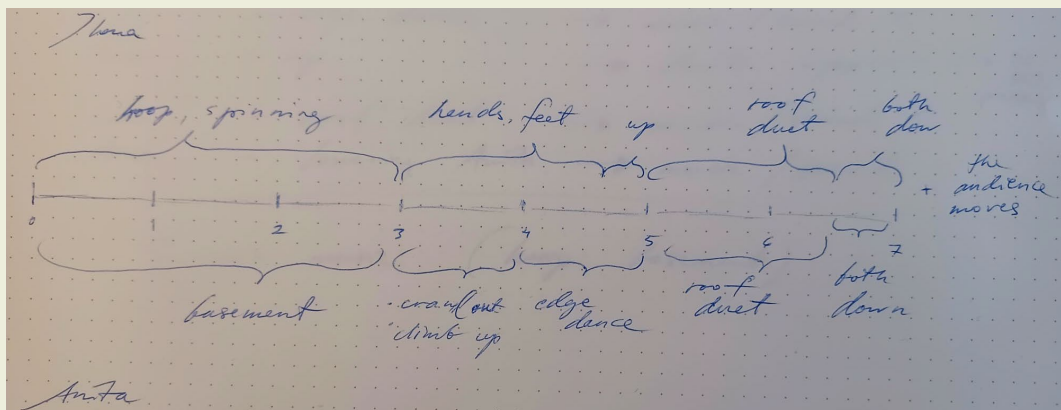 Ilona
hoop, spinning hands, feet up roof duet both dow
0 1 2 3 4 5 6 7
+ the audience moves
basement crawl out climb up edge dance roof duet both down
Anita